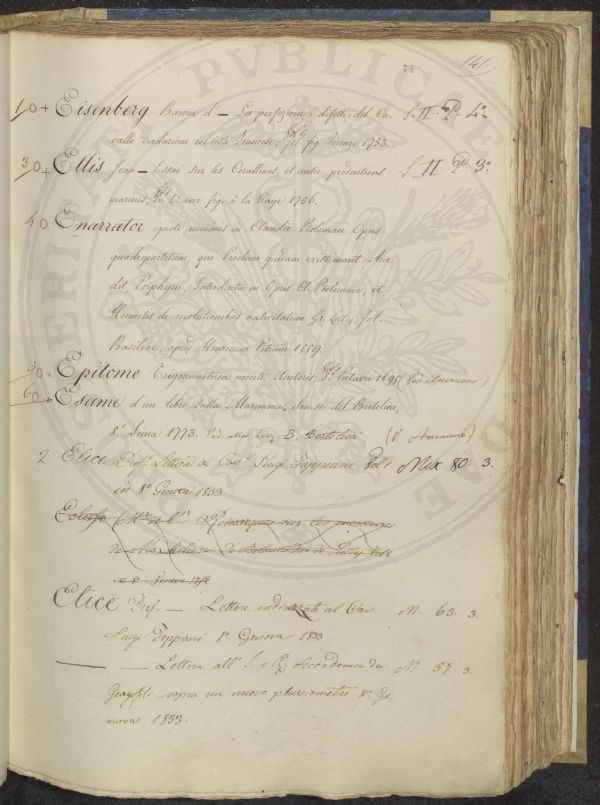 141.
1 0 + Eisenberg Barone d' — La perfezione, i difetti del Ca= S. II. P. 4.a
vallo traduzione col testo Francese, fol. fig. Firenze 1753.
3 0 + Ellis Jean — Essai sur les Corallines, et autre productions S. II. P. 3.a
marines, in 4.° avec fig. à la Haye 1756.
4 0 Enarrator ignoti nominis in Claudii Ptolomaei Opus
quadripartitum, quem Proclum quidam existimant: Acce
dit, Porphyrii, Introductio in Opus Cl. Ptolomaei, et
Hermetis de revolutionibus nativitatum Gr. Lat., fol.
Basileae, apud Henricum Petrum 1559.
50 × Epitome Trigonometrica incerti Auctoris, Patavii 1695 (Ved Anonimo)
60 + Esame d'un libro sulla Maremma Senese del Bertolini,
8.° Siena 1773. Ved alla lett. B. Bertolini (V. Anonimo)
2 Elice Prof. Lettera al Cav.e Luigi Foppiani Mix 80 3.
in 8.° Genova 1833
Remarques sur les
in 8.
Elice Prof. — Lettere indirizzate al Cav. M. 63. 3.
Luigi Foppiani 8.° Genova 1833
— Lettera all' I. e R. Accademia dei M. 57 3.
Georgofili sopra un nuovo pluviometro 8.° Ge
nova 1833.
PVBLICE